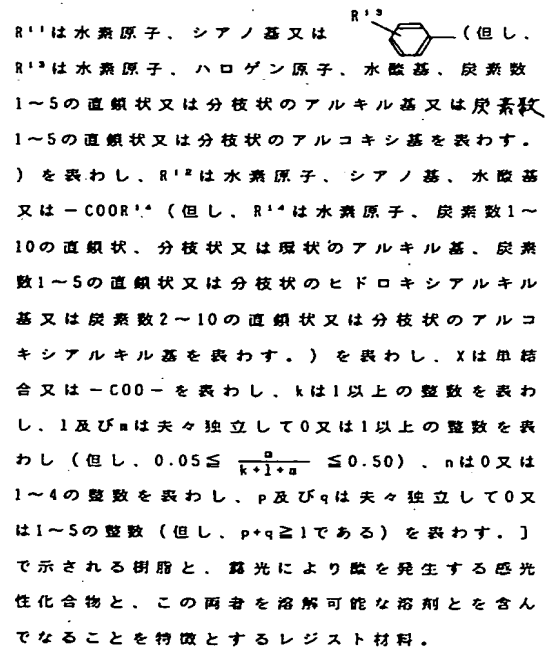 R¹¹は水素原子、シアノ基又は R¹³ (但し、
R¹³は水素原子、ハロゲン原子、水酸基、炭素数
1～5の直鎖状又は分枝状のアルキル基又は炭素数
1～5の直鎖状又は分枝状のアルコキシ基を表わす。
)を表わし、R¹²は水素原子、シアノ基、水酸基
又は－COOR¹⁴(但し、R¹⁴は水素原子、炭素数1～
10の直鎖状、分枝状又は環状のアルキル基、炭素
数1～5の直鎖状又は分枝状のヒドロキシアルキル
基又は炭素数2～10の直鎖状又は分枝状のアルコ
キシアルキル基を表わす。)を表わし、Xは単結
合又は－COO－を表わし、kは1以上の整数を表わ
し、l及びmは夫々独立して0又は1以上の整数を表
わし(但し、0.05≦ m/(k+l+m) ≦0.50)、nは0又は
1～4の整数を表わし、p及びqは夫々独立して0又
は1～5の整数(但し、p+q≧1である)を表わす。]
で示される樹脂と、露光により酸を発生する感光
性化合物と、この両者を溶解可能な溶剤とを含ん
でなることを特徴とするレジスト材料。